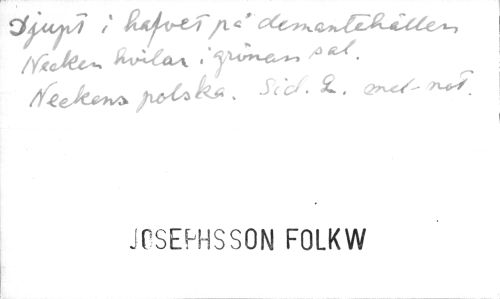 Djupt i hafvet på demantehällen
Necken hvilar i grönan sal.
Neckens polska. Sid. 2. med not.
JOSEPHSSON FOLKW